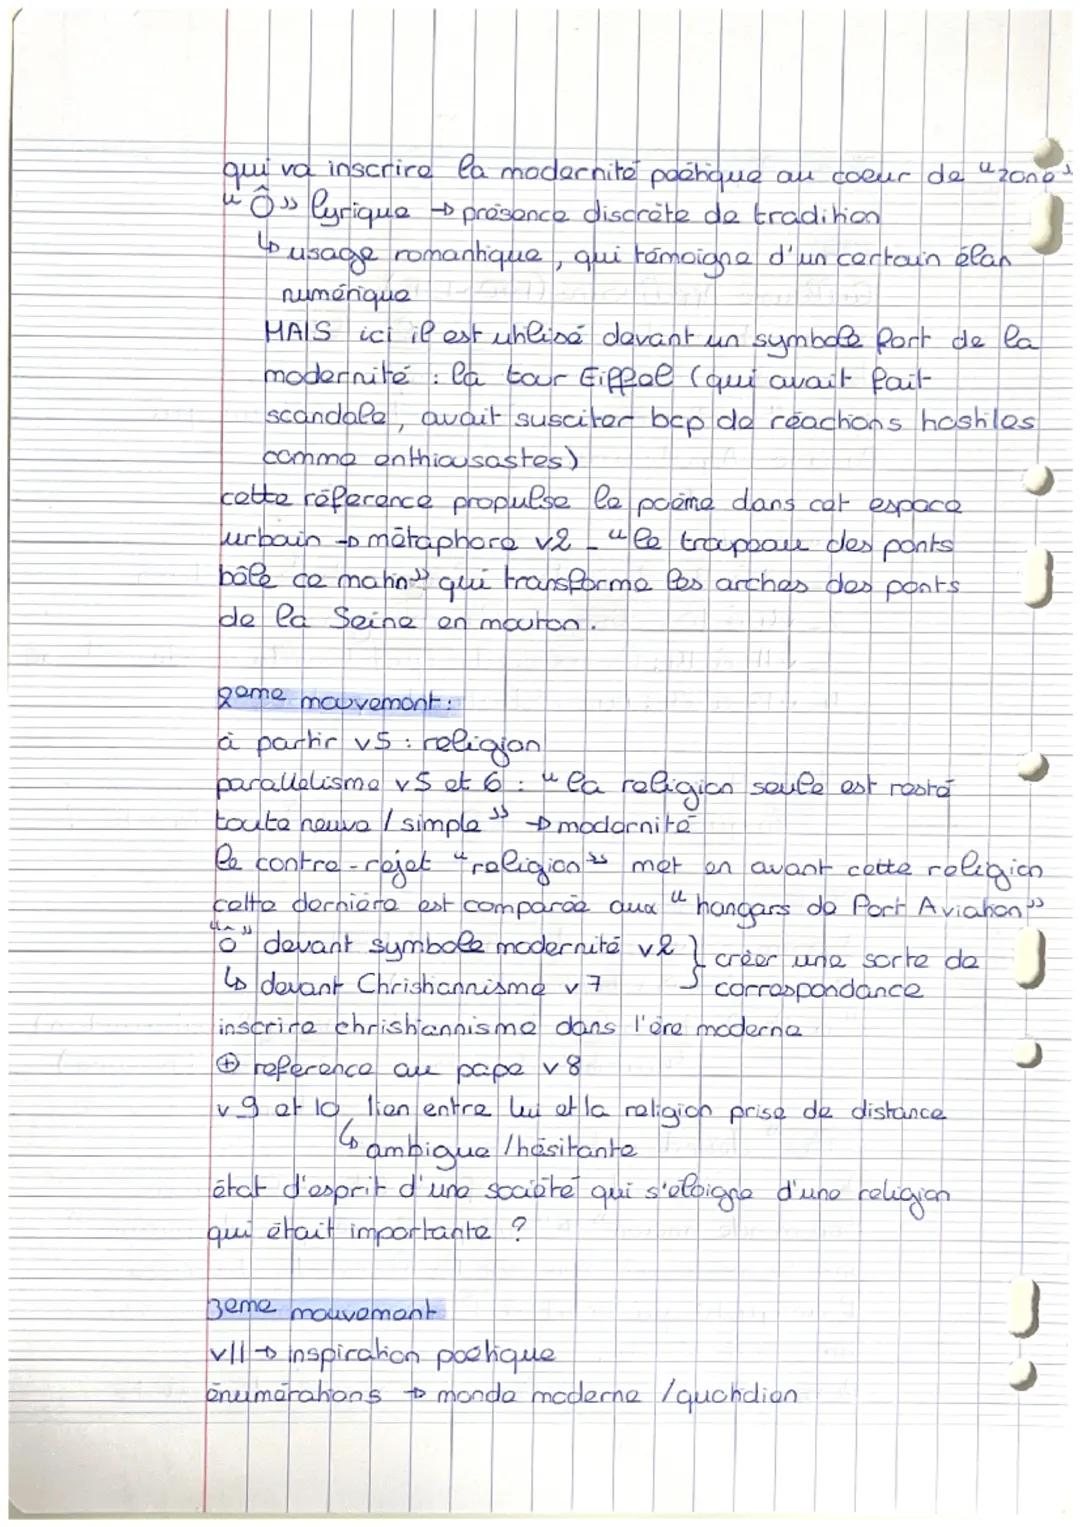 qui va inscrire la modernité poétique au coeur de "zone"
"Ô" lyrique → présence discrète de tradition
↳ usage romantique, qui témoigne d'un certain élan
numérique
MAIS ici il est utilisé devant un symbole fort de la
modernité : la tour Eiffel (qui avait fait
scandale, avait susciter bcp de réactions hostiles
comme enthiousastes)
cette référence propulse le poème dans cet espace
urbain → métaphore v2 - "le troupeau des ponts
bêle ce matin" qui transforme les arches des ponts
de la Seine en mouton.
2eme mouvement :
à partir v5 : religion
parallelisme v5 et 6 : "la religion seule est resté
toute neuve / simple" → modernité
le contre-rejet "religion" met en avant cette religion
cette dernière est comparée aux "hangars de Port Aviation"
"ô" devant symbole modernité v2 } créer une sorte de
↳ devant Christiannisme v7 correspondance
inscrire christiannisme dans l'ère moderne
⊕ reference au pape v8
v 9 et 10 lien entre lui et la religion prise de distance
↳ ambigue / hésitante
état d'esprit d'une société qui s'éloigne d'une religion
qui était importante ?
3eme mouvement
v11 → inspiration poétique
énumérations → monde moderne / quotidien